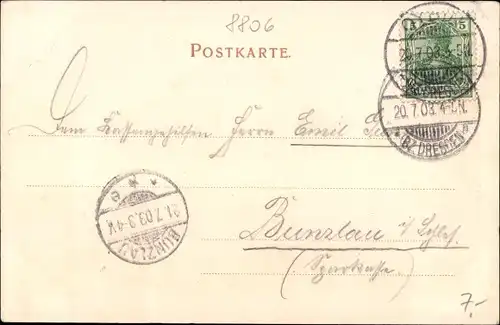 8806
POSTKARTE.
5
20.7.03.4-5N.
20.7.03.4-5N.
* Bz. DRESDEN *
Dem Kassengehilfen Herrn Emil
21.7.03.3-4V.
BUNZLAU
Bunzlau i/Schles.
(Sparkasse.)
7.-